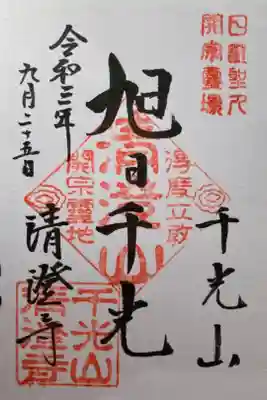 日蓮聖人
開宗靈場
千光山
旭日千光
清澄山
開宗靈地
令和三年
九月二十五日
清澄寺
千光山
清澄寺